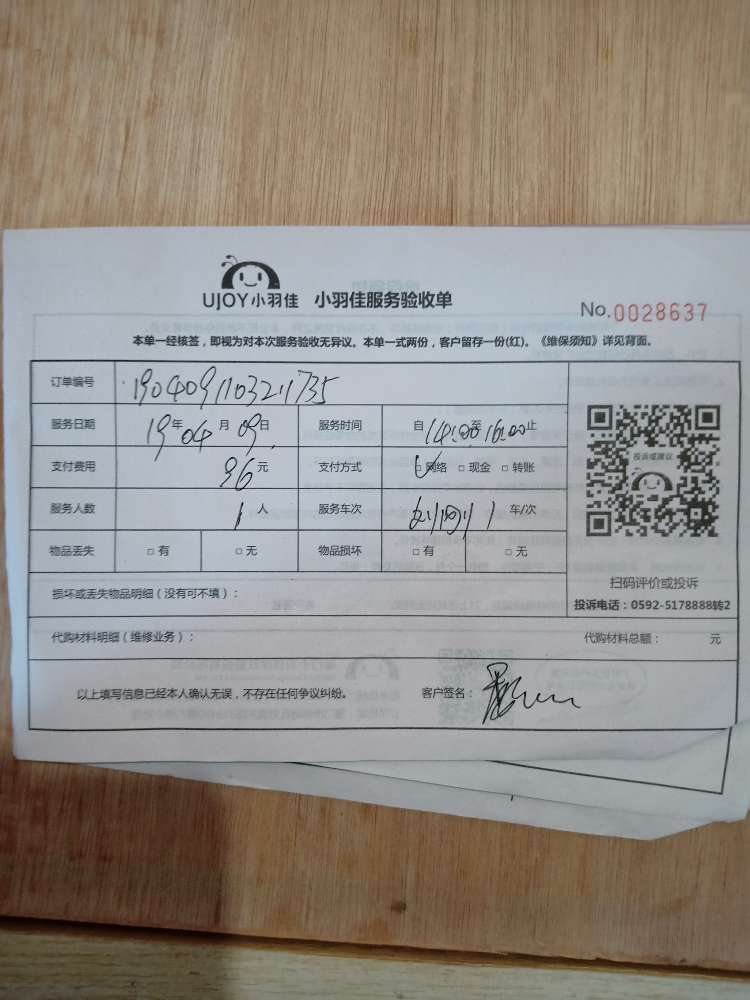 UJOY小羽佳 小羽佳服务验收单
No.0028637
本单一经核签，即视为对本次服务验收无异议。本单一式两份，客户留存一份(红)。《维保须知》详见背面。
订单编号 190409110321735
服务日期 19年04月09日 服务时间 自14:00至16:00止
支付费用 96元 支付方式 □网络 □现金 □转账
服务人数 1人 服务车次 1车/次
物品丢失 □有 □无 物品损坏 □有 □无
投诉或建议
扫码评价或投诉
投诉电话：0592-5178888转2
损坏或丢失物品明细（没有可不填）：
代购材料明细（维修业务）： 代购材料总额： 元
以上填写信息已经本人确认无误，不存在任何争议纠纷。 客户签名：